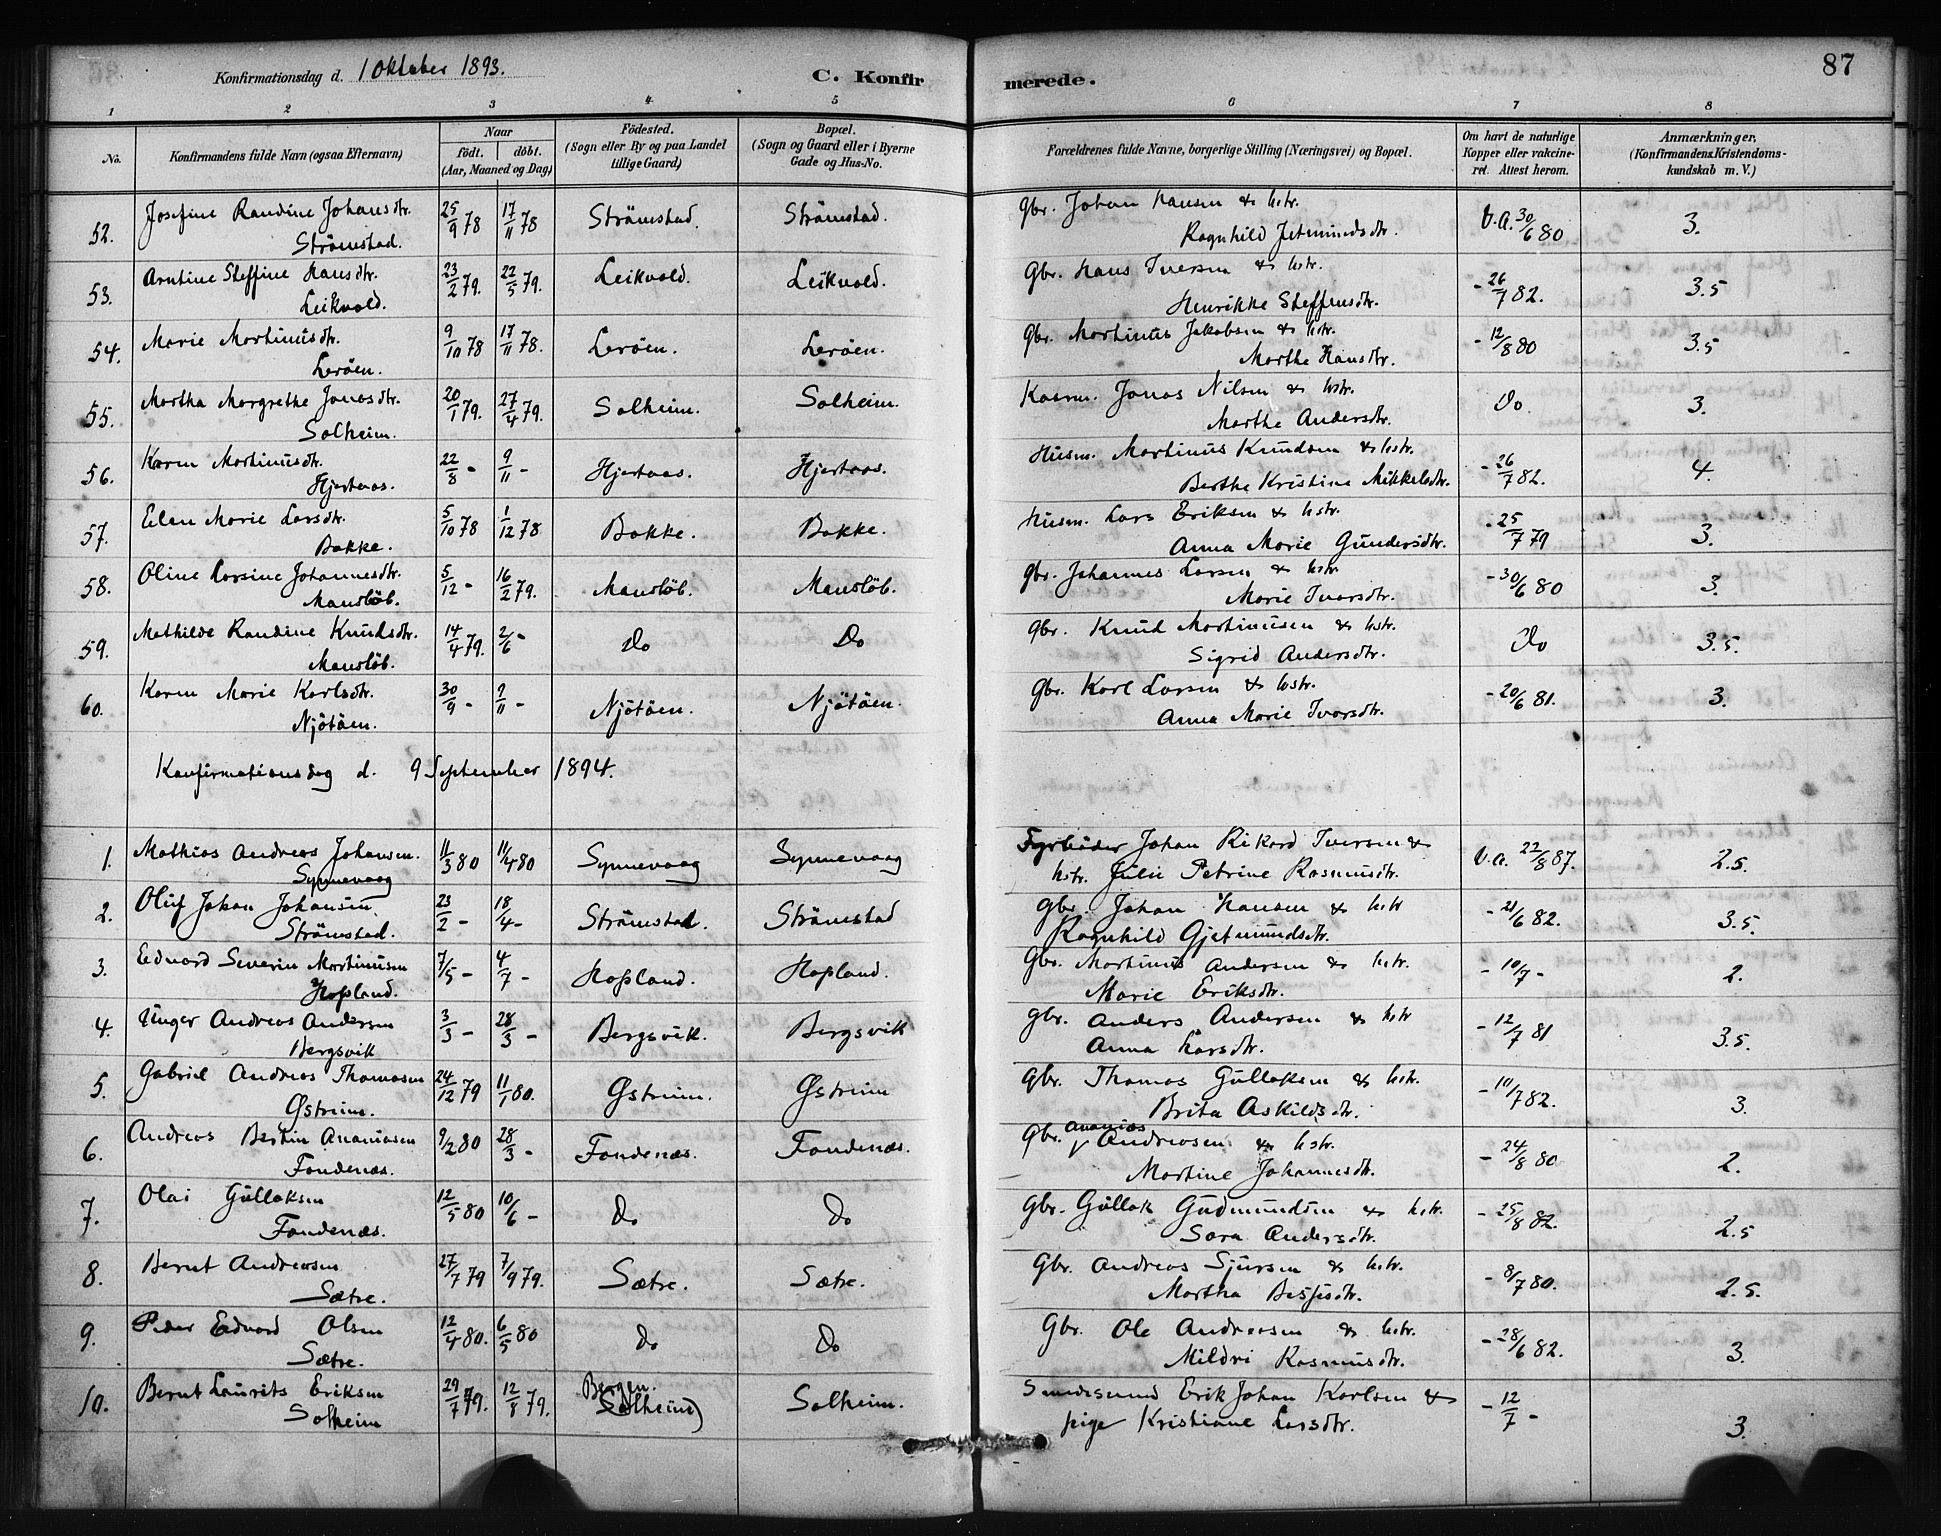 Konfirmationsdag d. 1 Oktober 1893. C. Konfirmerede. 87
1 2 3 4. 5 6 7 8
No. Konfirmandens fulde Navn (ogsaa Efternavn) Naar födt. döbt. (Aar, Maaned og Dag) Födested. (Sogn eller By og paa Landel tillige Gaard) Bopæl. (Sogn og Gaard eller i Byerne Gade og Hus-No. Forældrenes fulde Navne, borgerlige Stilling (Næringsvei) og Bopæl. Om havt de naturlige Kopper eller vakcineret. Attest herom. Anmærkninger, (Konfirmandens Kristendomskundskab m. V.)
52. Josefine Randine Johansdtr. 25/9 78 17/11 78 Strömstad. Strömstad. Gbr. Johan Hansen & hstr. V.A. 30/6 80 3.
Strömstad. Ragnhild Jetmundsdtr.
53. Arntine Steffine Hansdtr. 23/2 79. 22/5 79. Leikvold. Leikvold. Gbr. Hans Iversen & hstr. - 26/7 82. 3.5
Leikvold. Henrikke Steffensdtr.
54. Marie Martinusdtr. 9/10 78 17/11 78. Leröen. Leröen. Gbr. Martinus Jakobsen & hstr. - 12/8 80 3.5
Leröen. Marthe Hansdtr.
55. Martha Margrethe Jonasdtr. 20/1 79. 27/4 79. Solheim. Solheim. Jonas Nilsen & hstr. Do. 3.
Solheim. Marthe Andersdtr.
56. Karen Martinusdtr. 22/8 - 9/11 - Hjertaas. Hjertaas. Husm. Martinus Knudsen & hstr. - 26/7 82. 4.
Hjertaas. Berthe Kristine Mikkelsdtr.
57. Elen Marie Larsdtr. 5/10 78 1/12 78. Bakke. Bakke. Husm. Lars Eriksen & hstr. - 25/7 79 3.
Bakke. Anna Marie Gundersdtr.
58. Oline Larsine Johannesdtr. 5/12 - 16/2 79. Mauslöb. Mauslöb. Gbr. Johannes Larsen & hstr. - 30/6 80 3.
Mauslöb. Marie Ivarsdtr.
59. Mathilde Randine Knudsdtr. 14/4 79. 2/6 - Do Do Gbr. Knud Martinusen & hstr. Do 3.5.
Mauslöb. Sigrid Andersdtr.
60. Karen Marie Karlsdtr. 30/9 - 9/11 - Njötöen. Njötöen. Gbr. Karl Larsen & hstr. - 20/6 81. 3.
Njötöen. Anna Marie Ivarsdtr.
Konfirmationsdag d. 9 September 1894.
1. Mathias Andreas Johansen. 11/3 80 11/4 80 Synnevaag Synnevaag Johan Rikard Iversen & V.A. 22/8 87. 2.5.
Synnevaag hstr. Julie Petrine Rasmusdtr.
2. Oluf Johan Johansen. 23/2 - 18/4 - Strömstad. Strömstad Gbr. Johan Hansen & hstr - 21/6 82. 3.5.
Strömstad. Ragnhild Gjetmundsdtr.
3. Edvard Severin Martinusen 7/5 - 4/7 - Hopland. Hopland. Gbr. Martinus Andersen & hstr. - 10/7 - 2.
Hopland. Marie Eriksdtr.
4. Unger Andreas Andersen 3/3 - 28/3 - Bergsvik. Bergsvik Gbr. Anders Andersen & hstr - 12/7 81 3.5.
Bergsvik Anna Larsdtr.
5. Gabriel Andreas Thomasen 24/12 79 11/1 80. Østreim. Østreim Gbr. Thomas Gullaksen & hstr. - 10/7 82. 3.
Østreim. Brita Askildsdtr.
6. Andreas Bertin Ananiasen 9/2 80 28/3 - Fondenæs. Fondenæs. Gbr. Ananias Andreasen & hstr. - 24/8 80 2.
Fondenæs. Martine Johannesdtr.
7. Olai Gullaksen 12/5 80 10/6 - Do Do Gbr. Gullak Gudmundsen & hstr. - 25/8 82. 2.5
Fondenæs. Sara Andersdtr.
8. Bernt Andreasen 27/7 79 7/9 79. Sætre. Sætre. Gbr. Andreas Sjursen & hstr. - 8/7 80. 2.5.
Sætre. Martha
9. Peder Edvard Olsen 12/4 80. 6/5 80 Do Do Gbr. Ole Andreasen & hstr. - 28/6 82. 3.
Sætre. Mildri Rasmusdtr.
10. Bernt Laurits Eriksen 29/7 79. 12/8 79. Bergen. Solheim) Solheim. Erik Johan Karlsen & - 12/7 - 3.
Solheim pige Kristiane Larsdtr.